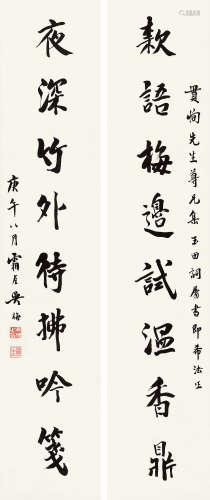 貫恂先生尊兄集玉田詞屬書即希法正
款語梅邊試温香鼎
夜深竹外待拂吟箋
庚午八月霜厓吳梅